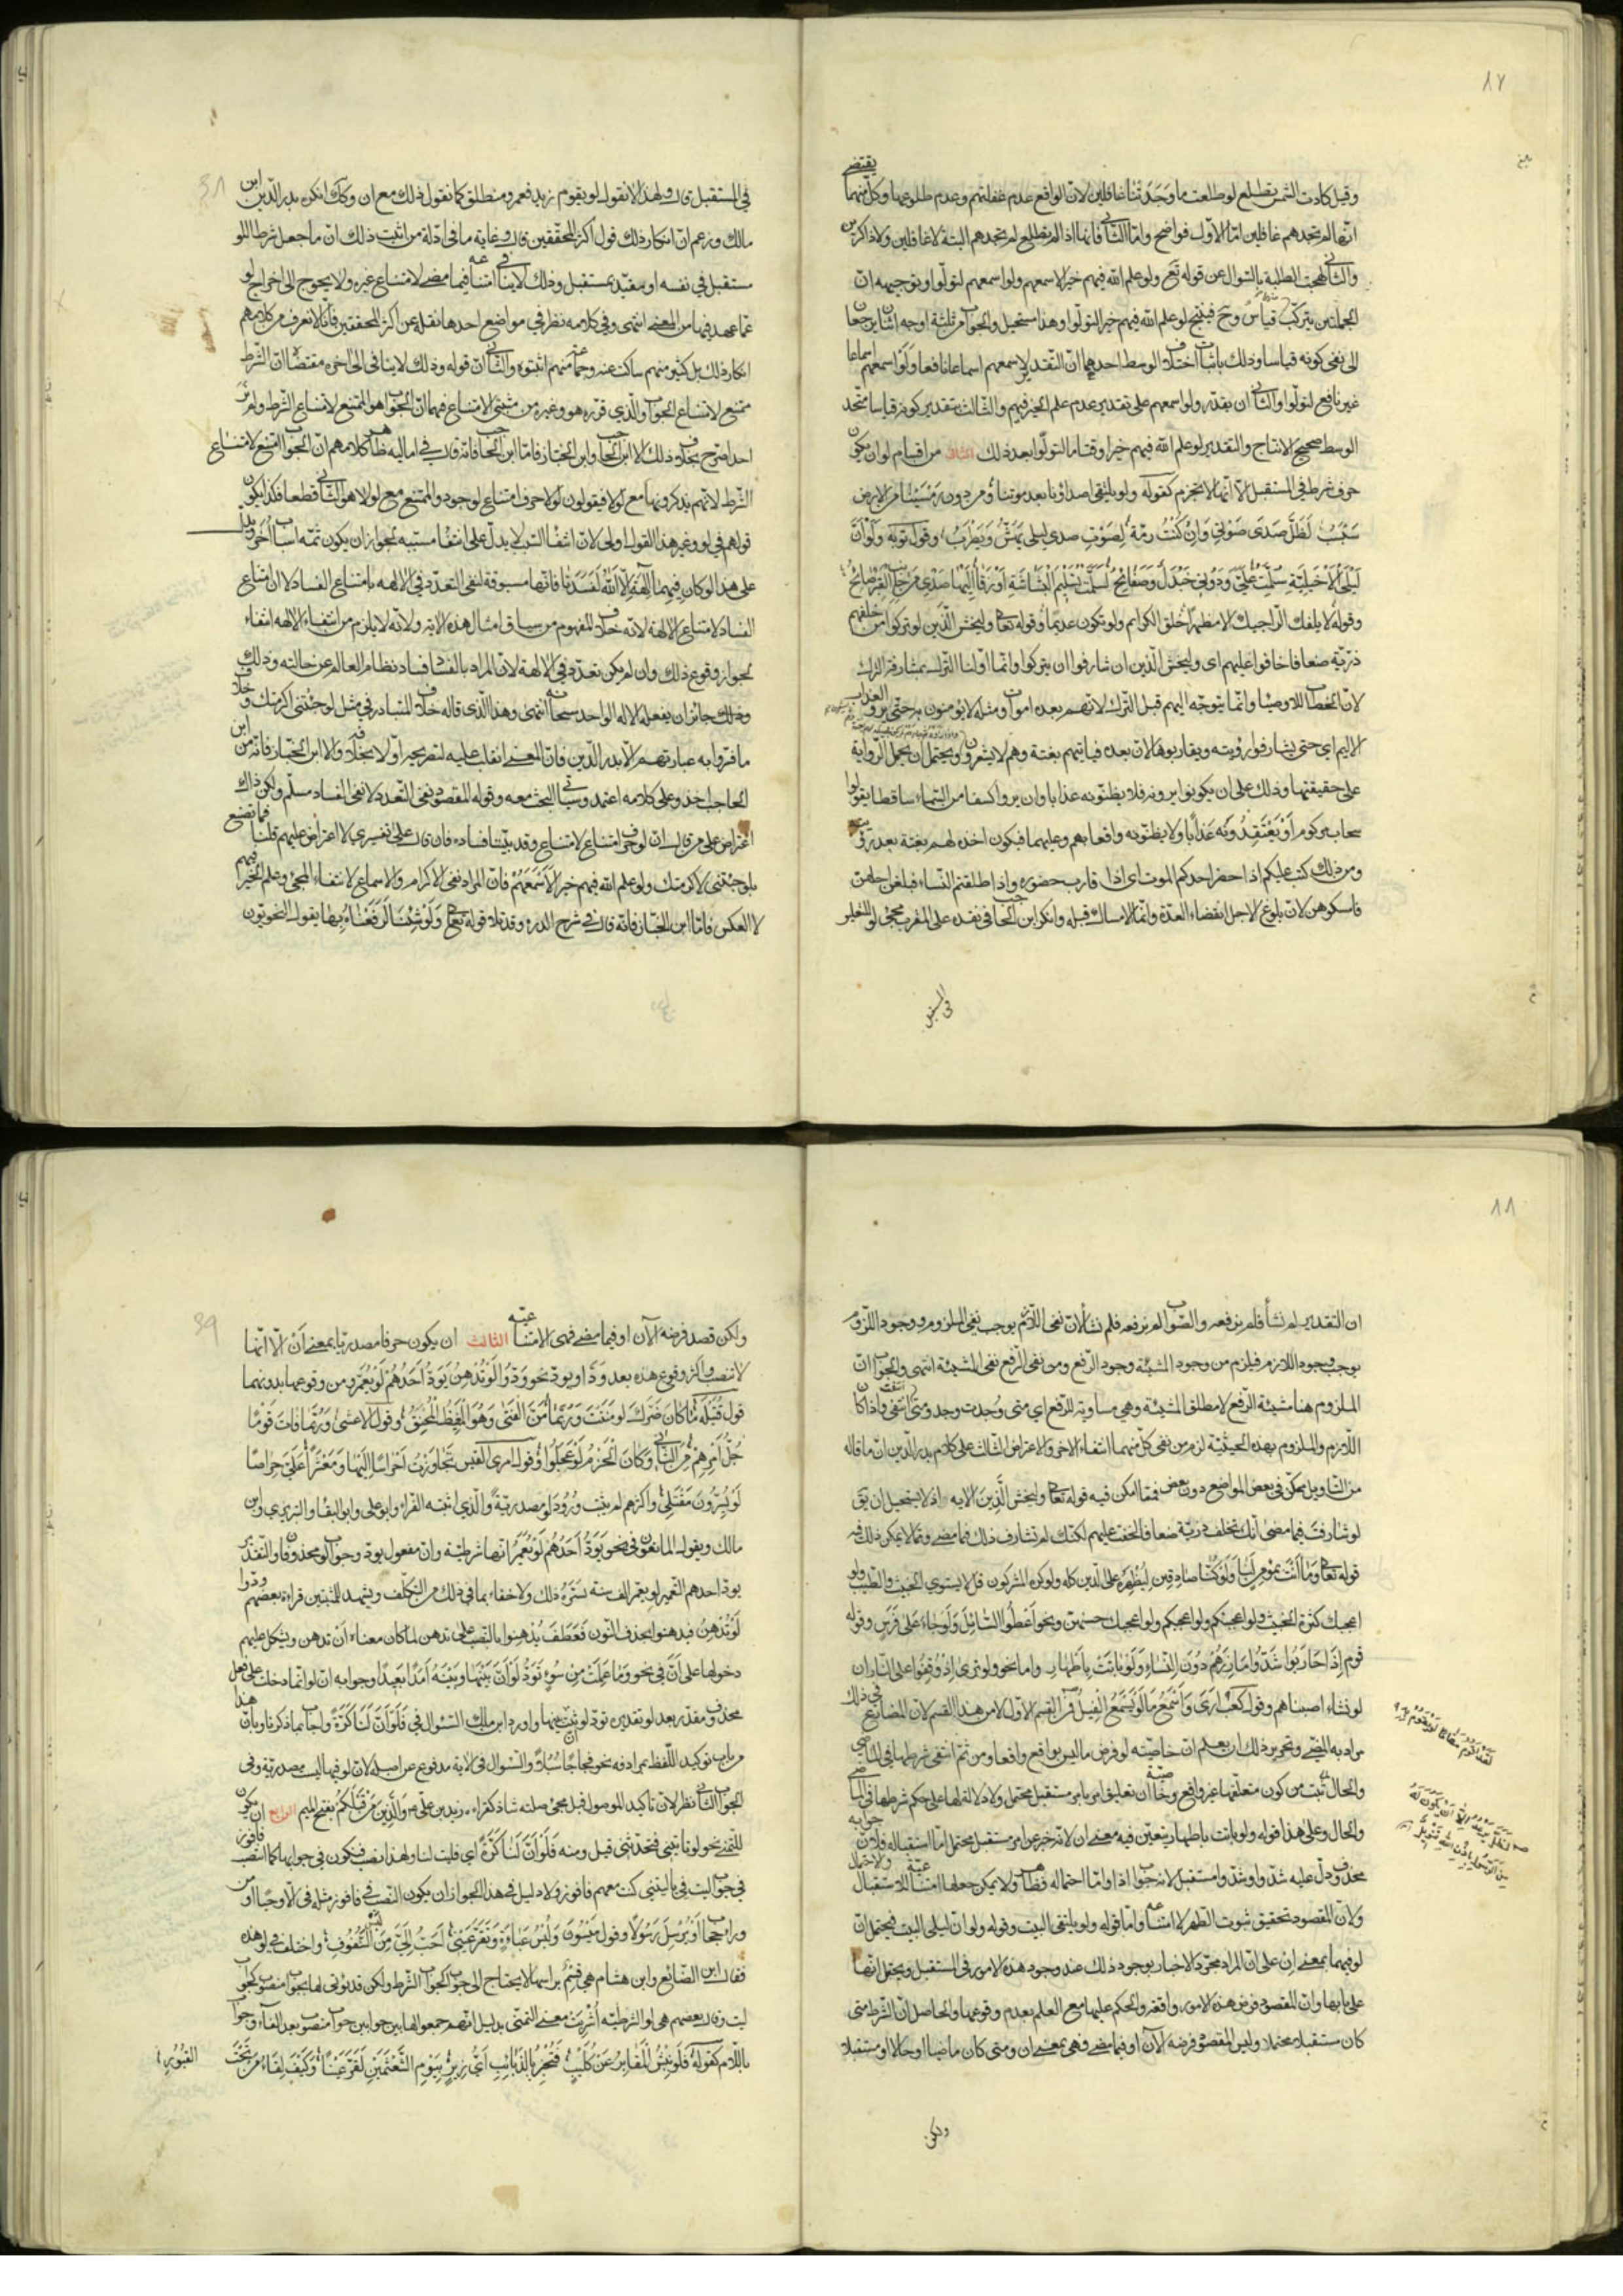 ٨٧
وقيل كادت الشمس تطلع لو طلعت ما وجدتنا غافلين لان الواقع عدم غفلتهم وعدم طلوعها وكل منهما يقتضي
انها لم تجدهم غافلين اما الاول فواضح واما الثاني فانها اذا لم تطلع لم تجدهم البتة لا غافلين ولا ذاكرين
والثاني لهجت الطلبة بالسؤال عن قوله تع ولو علم الله فيهم خيرا لاسمعهم ولو اسمعهم لتولوا وتوجيهه ان
الجملتين يتركب منهما قياس وح فينتج لو علم الله فيهم خيرا لتولوا وهذا مستحيل والجواب من ثلثة اوجه اثنان يرجعان
الى نفي كونه قياسا وذلك باثبات اختلاف الوسط احدهما ان التقدير لاسمعهم اسماعا نافعا ولو اسمعهم اسماعا
غير نافع لتولوا والثاني ان يقدر ولو اسمعهم على تقدير عدم علم الخير فيهم والثالث بتقدير كونه قياسا متحد
الوسط صحيح الانتاج والتقدير لو علم الله فيهم خيرا وقتا ما لتولوا بعد ذلك الثاني من اقسام لو ان يكون
حرف شرط في المستقبل الا انها لا تجزم كقوله ولو يلتقي اصداؤنا بعد موتنا ومن دون رمسينا من الارض
سبسب لظل صدى صوتي وان كنت رمة لصوت صدى ليلى يهش ويطرب وقول توبة ولو ان
ليلى الاخيلية سلمت علي ودوني جندل وصفائح لسلمت تسليم البشاشة او زقا اليها صدى من جانب القبر صائح
وقوله لا يلفك الراجيك الا مظهرا خلق الكرام ولو تكون عديما وقوله تعالى وليخش الذين لو تركوا من خلفهم
ذرية ضعافا خافوا عليهم اى وليخش الذين ان شارفوا ان يتركوا وانما اولنا الترك بمشارفة الترك
لان الخطاب للاوصياء وانما يتوجه اليهم قبل الترك لانهم بعده اموات ومثله لا يؤمنون به حتى يروا العذاب
الاليم اي حتى يشارفوا رؤيته ويقاربوها لان بعده فيأتيهم بغتة وهم لا يشعرون ويحتمل ان يحمل الرواية
على حقيقتها وذلك على ان يكونوا يرونه فلا يظنونه عذابا وان يروا كسفا من السماء ساقطا يقولوا
سحاب مركوم او يعتقدونه عذابا ولا يظنونه واقعا بهم وعليهما فيكون اخذه لهم بغتة بعد رؤيته
ومن ذلك كتب عليكم اذا حضر احدكم الموت اى اذا قارب حضوره واذا طلقتم النساء فبلغن اجلهن
فامسكوهن لان بلوغ الاجل انقضاء العدة وانما الامساك قبله وانكر ابن الحاجب في نقده على المقرب مجئ لو للتعليق
في المستقبل
في المستقبل قال ولهذا لا تقول لو يقوم زيد فعمرو منطلق كما تقول ذلك مع ان وكذلك انكره بدر الدين ابن
مالك وزعم ان انكار ذلك قول اكثر المحققين قال وغاية ما في ادلة من اثبت ذلك ان ما جعل شرطا للو
مستقبل في نفسه او مقيد بمستقبل وذلك لا ينافي امتناعه فيما مضى لامتناع غيره ولا يحوج الى اخراج لو
عما عهد فيها من المعنى انتهى وفي كلامه نظر في مواضع احدها نقله عن اكثر المحققين فانا لا نعرف من كلامهم
انكار ذلك بل كثير منهم ساكت عنه وجماعة منهم اثبتوه والثاني ان قوله وذلك لا ينافي الى اخره مقتضاه ان الشرط
ممتنع لامتناع الجواب والذي قرره هو وغيره من مثبتي الامتناع فيهما ان الجواب هو الممتنع لامتناع الشرط ولم نر
احدا صرح بخلاف ذلك الا ابن الحاجب وابن الخباز فاما ابن الحاجب فانه قال في اماليه ظاهر كلامهم ان الجواب امتنع لامتناع
الشرط لانهم يذكرونها مع لولا فيقولون لولا حرف امتناع لوجود والممتنع مع لولا هو الثاني قطعا فكذا يكون
قولهم في لو وغير هذا القول اولى لان انتفاء السبب لا يدل على انتفاء مسببه لجواز ان يكون ثمة اسباب اخر ويدل
على هذا لو كان فيهما آلهة الا الله لفسدتا فانها مسبوقة لنفي التعدد في الالهة بامتناع الفساد لا ان امتناع
الفساد لامتناع الالهة لانه خلاف المفهوم من سياق امثال هذه الاية ولانه لا يلزم من انتفاء الالهة انتفاء
لجواز وقوع ذلك وان لم يكن تعدد في الالهة لان المراد بالفساد فساد نظام العالم عن حالته وذلك
وذلك جائز ان يفعله الاله الواحد سبحانه انتهى وهذا الذي قاله خلاف المتبادر في مثل لو جئتني اكرمتك وخلاف
ما فسروا به عبارتهم الا بدر الدين فان المعنى انقلب عليه لتصريحه اولا بخلافه والا ابن الخباز فانه من ابن
الحاجب اخذ وعلى كلامه اعتمد وسيأتي البحث معه وقوله المقصود نفي التعدد لا نفي الفساد مسلم ولكن ذاك
اعتراض على من قال ان لو حرف امتناع لامتناع وقد بينا فساده فان قال على تفسيري لا اعتراض عليهم قلنا فما تصنع
بلو جئتني لاكرمتك ولو علم الله فيهم خيرا لاسمعهم فان المراد نفي الاكرام والاسماع لانتفاء المجئ وعلم الخير فيهم
لا العكس فاما ابن الخباز فانه قال في شرح الدرة وقد تلا قوله تعالى ولو شئنا لرفعناه بها يقول النحويون
٨٨
ان التقدير لم نشأ فلم نرفعه والصواب لم نرفعه فلم نشأ لان نفي اللازم يوجب نفي الملزوم ووجود الملزوم
يوجب وجود اللازم فيلزم من وجود المشيئة وجود الرفع ومن نفي الرفع نفي المشيئة انتهى والجواب ان
الملزوم هنا مشيئة الرفع لا مطلق المشيئة وهي مساوية للرفع اى متى وجدت وجد ومتى انتفت انتفى واذا كان
اللازم والملزوم بهذه الحيثية لزم من نفي كل منهما انتفاء الاخر والاعتراض الثالث على كلام بدر الدين ان ما قاله
من التاويل ممكن في بعض المواضع دون بعض فمما امكن فيه قوله تعالى وليخش الذين الاية اذ لا يستحيل ان يق
لو شارفت فيما مضى انك تخلف ذرية ضعافا لخفت عليهم لكنك لم تشارف ذلك فيما مضى ومما لا يمكن ذلك فيه
قوله تعالى وما انت بمؤمن لنا ولو كنا صادقين ليظهره على الدين كله ولو كره المشركون قل لا يستوي الخبيث والطيب ولو
اعجبك كثرة الخبيث ولو اعجبتكم ولو اعجبكم ولو اعجبك حسنهن ونحو اعطوا السائل ولو جاء على فرس وقوله
قوم اذا حاربوا شدوا مآزرهم دون النساء ولو باتت باطهار واما نحو ولو ترى اذ وقفوا على النار ان
لو نشاء اصبناهم وقول كعب ارى واسمع ما لو يسمع الفيل فمن القسم الاول لا من هذا القسم لان المضارع في ذلك
مراد به المضي وتحرير ذلك ان يعلم ان خاصية لو فرض ما ليس بواقع واقعا ومن ثم انتفى شرطها في الماضي
والحال لما ثبت من كون متعلقها غير واقع وخاصية ان تعليق امر بامر مستقبل محتمل ولا دلالة لها على حكم شرطها في الماضي
والحال وعلى هذا فقوله ولو باتت باطهار يتعين فيه معنى ان لانه خبر عن امر مستقبل محتمل اما استقباله فلان جوابه
محذوف دل عليه شدوا وشدوا مستقبل لانه جواب اذا واما احتماله فظاهر ولا يمكن جعلها امتناعية للاستقبال والاحتمال
ولان المقصود تحقيق ثبوت الطهر لا امتناعه واما قوله ولو يلتقي البيت وقوله ولو ان ليلى البيت فيحتمل ان
لو فيهما بمعنى ان على ان المراد مجرد الاخبار بوجود ذلك عند وجود هذه الامور في المستقبل ويحتمل انها
على بابها وان المقصود فرض هذه الامور واقعة والحكم عليها مع العلم بعدم وقوعها والحاصل ان الشرط متى
كان مستقبلا محتملا وليس المقصود فرضه الآن او فيما مضى فهي بمعنى ان ومتى كان ماضيا او حالا او مستقبلا
ولكن
ولكن قصد فرضه الآن او فيما مضى فهي الامتناعية الثالث ان يكون حرفا مصدريا بمعنى ان الا انها
لا تنصب واكثر وقوع هذه بعد ود او يود نحو ودوا لو تدهن يود احدهم لو يعمر ومن وقوعها بدونهما
قول قتيلة ما كان ضرك لو مننت وربما من الفتى وهو المغيظ المحنق وقول الاعشى وربما فات قوما
جل امرهم من التاني وكان الحزم لو عجلوا وقول امرئ القيس تجاوزت احراسا اليها ومعشرا علي حراصا
لو يسرون مقتلي واكثرهم لم يثبت ورود لو مصدرية والذي اثبته الفراء وابو علي وابو البقاء والتبريزي وابن
مالك ويقول المانعون في نحو يود احدهم لو يعمر انها شرطية وان مفعول يود وجواب لو محذوفان والتقدير
يود احدهم التعمير لو يعمر الف سنة لسره ذلك ولا خفاء بما في ذلك من التكلف ويشهد للمثبتين قراءة بعضهم ودوا
لو تدهن فيدهنوا بحذف النون فعطف يدهنوا بالنصب على تدهن لما كان معناه ان تدهن ويشكل عليهم
دخولها على ان في نحو وما عملت من سوء تود لو ان بينها وبينه امدا بعيدا وجوابه ان لو انما دخلت على فعل
محذوف مقدر بعد لو تقديره تود لو ثبت ان بينها واورد ابن مالك السؤال في فلو ان لنا كرة واجاب بما ذكرنا وبان هذا
من باب توكيد اللفظ بمرادفه نحو فجاجا سبلا والسؤال في الاية مدفوع من اصله لان لو فيها ليست مصدرية وفي
الجواب الثاني نظر لان تاكيد الموصول قبل مجئ صلته شاذ كقراءة زيد بن علي والذين من قبلكم بفتح الميم الرابع ان يكون
للتمني نحو لو تاتيني فتحدثني قيل ومنه فلو ان لنا كرة اى فليت لنا ولهذا نصب فنكون في جوابها كما انتصب فافوز
في جواب ليت في يا ليتني كنت معهم فافوز ولا دليل في هذا لجواز ان يكون النصب في فافوز مثله في الا وحيا او من
وراء حجاب او يرسل رسولا وقول ميسون ولبس عباءة وتقر عيني احب الي من لبس الشفوف واختلف في لو هذه
فقال ابن الضائع وابن هشام هي قسم براسها لا يحتاج الى جواب كجواب الشرط ولكن قد يؤتى لها بجواب منصوب كجواب
ليت وقال بعضهم هي لو الشرطية اشربت معنى التمني بدليل انهم جمعوا لها بين جوابين جواب منصوب بعد الفاء وجواب
باللام كقوله فلو نبش المقابر عن كليب فتخبر بالذنائب اى زير بيوم الشعثمين لقر عينا وكيف لقاء من تحت
القبور